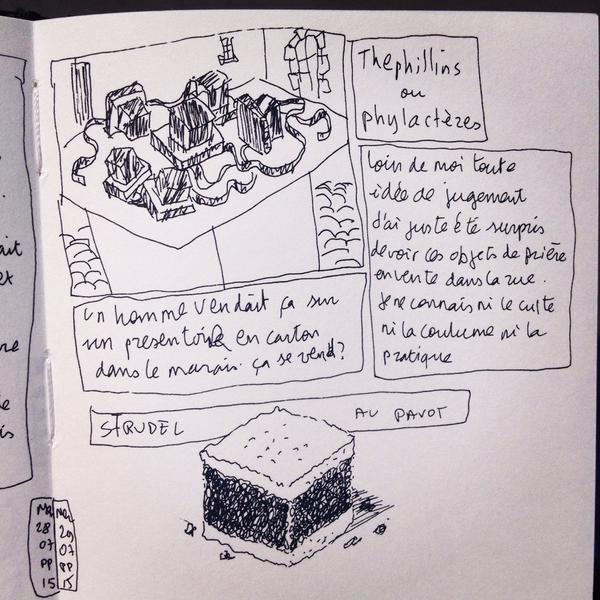 Thephillins
ou
phylactèzes
loin de moi toute
idée de jugement
j'ai juste été surpris
de voir ces objets de prière
en vente dans la rue.
Je ne connais ni le culte
ni la coutume ni la
pratique
un homme vendait ça sur
un presentoire en carton
dans le marais. ça se vend?
STRUDEL AU PAVOT
Ma
28
07
PP
15
Mer
29
07
PP
15